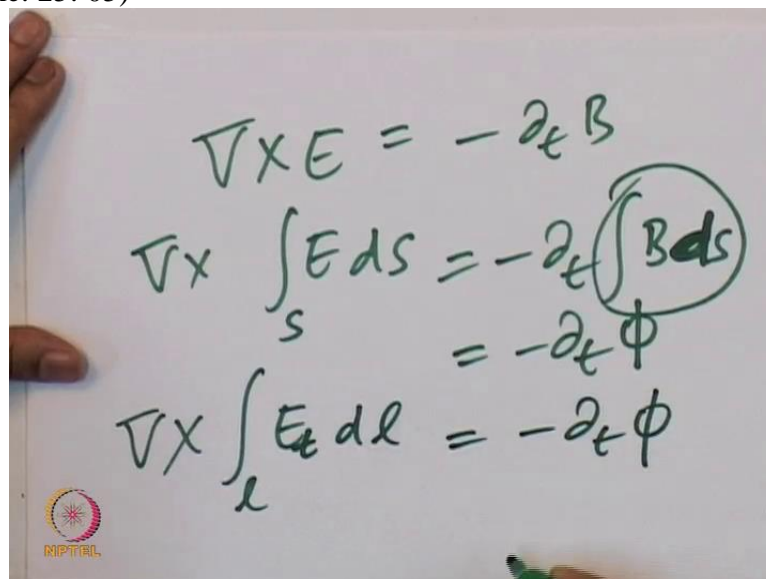 ∇×E = -∂ₜB
∇× ∫_S E dS = -∂ₜ ∫ B ds
= -∂ₜ ϕ
∇× ∫_l Eₜ dl = -∂ₜ ϕ
NPTEL